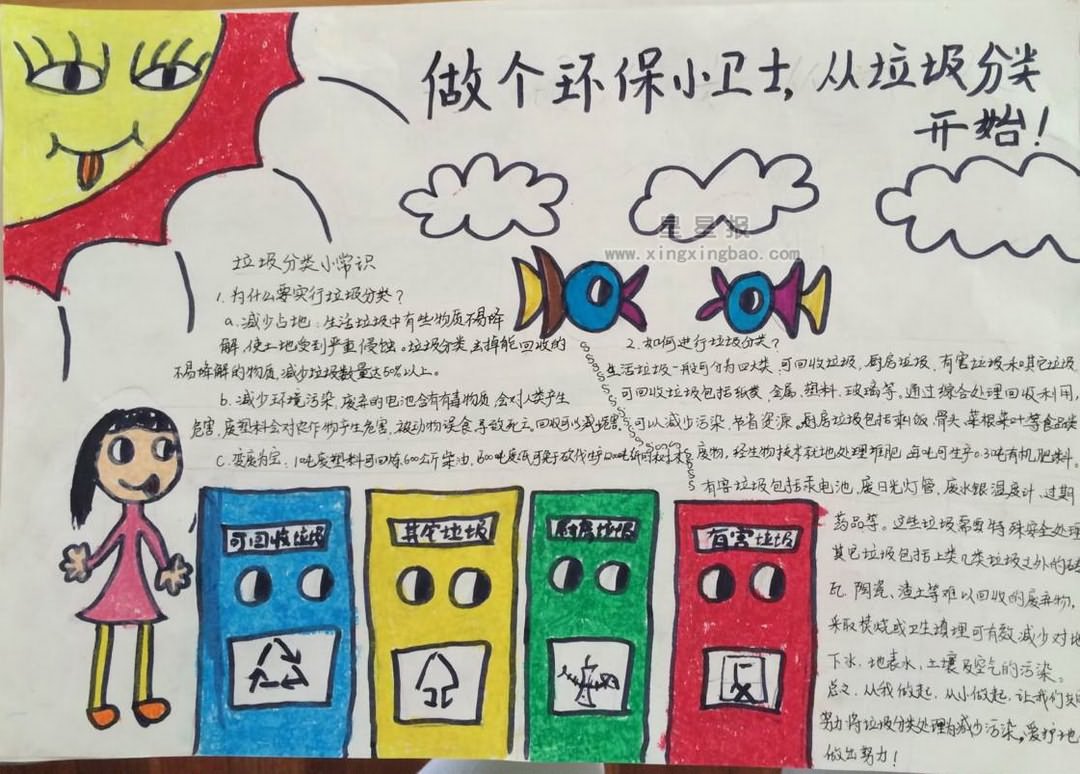 做个环保小卫士,从垃圾分类
开始!
星星报
www.xingxingbao.com
垃圾分类小常识
1.为什么要实行垃圾分类?
a.减少占地:生活垃圾中有些物质不易降
解,使土地受到严重侵蚀。垃圾分类去掉能回收的
不易降解的物质,减少垃圾数量达50%以上。
b.减少环境污染,废弃的电池含有有毒物质,会对人类产生
危害,废塑料会对农作物产生危害,被动物误食导致死亡。回收可以减少危害。
C.变废为宝:1吨废塑料可回炼600公斤柴油,
2.如何进行垃圾分类?
生活垃圾一般可分为四大类,可回收垃圾,厨房垃圾,有害垃圾和其它垃圾
可回收垃圾包括纸类,金属,塑料,玻璃等,通过综合处理回收利用,
可以减少污染,节省资源。厨房垃圾包括剩饭,骨头,菜根菜叶等食品类
废物,经生物技术就地处理堆肥,每吨可生产0.3吨有机肥料。
有害垃圾包括汞电池,废日光灯管,废水银温度计,过期
药品等。这些垃圾需要特殊安全处理
其它垃圾包括上类几类垃圾之外的砖
瓦、陶瓷、渣土等难以回收的废弃物,
采取焚烧或卫生填埋可有效减少对地
下水,地表水,土壤及空气的污染。
总之,从我做起,从小做起,让我们共同
努力将垃圾分类处理为减少污染,爱护地
做出努力!
可回收垃圾
其它垃圾
厨房垃圾
有害垃圾